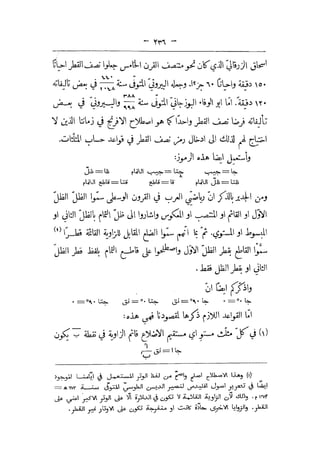 — ٢٣٦ —
اسحاق الزرقاني الذي كان نحو منتصف القرن الخامس جعلوا نصف القطر احيانًا
١٥٠ دقيقة واحيانًا ٦٠ جزءًا. وجعله البيروني المتوفى سنة في بعض تأليفاته
١٢٠ دقيقة. امّا ابو الوفاء البوزجاني المتوفى سنة ٣٨٨ / ٩٩٨ والبيروني في بعض
تأليفاته فرضا نصف القطر واحدًا كما هو اصطلاح الافرنج في زماننا الذين لا
احتياج لهم لذلك الى ادخال رمز نصف القطر في قواعد حساب المثلثات.
وأستعمل ايضًا هذه الرموز:
جا = جيب جتا = جيب التمام ظا = ظل
ظتا = ظل التمام قا = قاطع قتا = قاطع التمام
ومن الجدير بالذكر انّ رياضيي العرب في القرون الوسطى سمّوا الظل الظل
الاوّل او القائم او المنتصب او المعكوس واشاروا الى ظل التمام بالظل الثاني او
المبسوط او المستوي. ثمّ انّهم سمّوا الضلع المقابل للزاوية القائمة قطرًا (١)
سمّوا القاطع بقطر الظل الاوّل واصطلحوا على قاطع التمام بلفظ قطر الظل
الثاني او بقطر الظل فقط.
واذكركم ايضًا انّ
جا ٠° = ٠ جا ٩٠° = نق جتا ٠° = نق جتا ٩٠° = ٠
امّا القواعد اللازم ذكرها لمقصودنا فهي هذه:
(١) في كلّ مثلث مستوٍ اي مستقيم الاضلاع قائم الزاوية في نقطة ب يكون
جا ا = نق
(١) وهذا الاصطلاح اصلح من لفظ الوتر المستعمل في ايامنا الموجود
ايضًا في تحرير اصول اقليدس لنصير الدين الطوسي المتوفى سنة
١٢٧٣ م. وذلك لأن الزاوية القائمة لا تكون في الدائرة الّا على الوتر الاكبر اعني على
القطر. والزوايا الاخرى حادّة كانت او منفرجة تكون على الاوتار غير القطر.